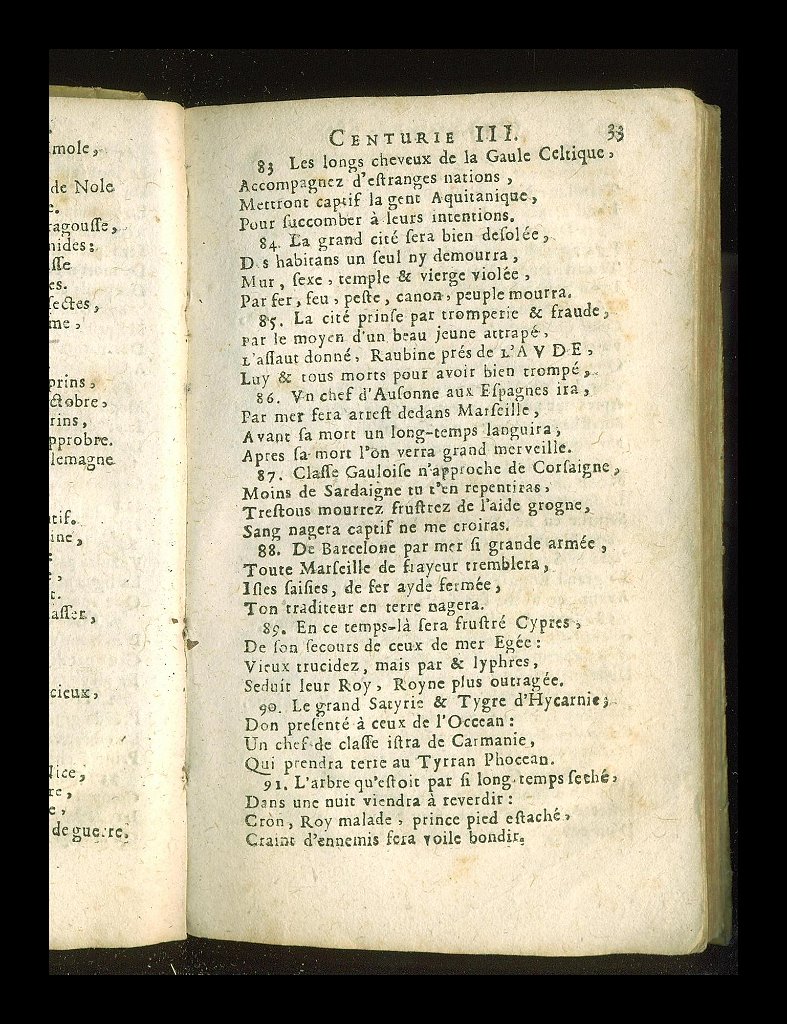 mole,
de Nole
e.
ragousse,
nides:
sse
es.
sectes,
me,
prins,
ctobre,
rins,
pprobre.
lemagne
tif.
ine,
e,
t.
asser,
cieux,
Nice,
re,
e,
de guerre.
CENTURIE III. 33
83 Les longs cheveux de la Gaule Celtique,
Accompagnez d'estranges nations,
Mettront captif la gent Aquitanique,
Pour succomber à leurs intentions.
84. La grand cité sera bien desolée,
D s habitans un seul ny demourra,
Mur, sexe, temple & vierge violée,
Par fer, feu, peste, canon, peuple mourra.
85. La cité prinse par tromperie & fraude,
Par le moyen d'un beau jeune attrapé,
L'assaut donné, Raubine prés de L'AVDE,
Luy & tous morts pour avoir bien trompé,
86. Vn chef d'Ausonne aux Espagnes ira,
Par mer fera arrest dedans Marseille,
Avant sa mort un long-temps languira,
Apres sa mort l'on verra grand merveille.
87. Classe Gauloise n'approche de Corsaigne,
Moins de Sardaigne tu t'en repentiras,
Trestous mourrez frustrez de l'aide grogne,
Sang nagera captif ne me croiras.
88. De Barcelone par mer si grande armée,
Toute Marseille de frayeur tremblera,
Isles saisies, de fer ayde fermée,
Ton traditeur en terre nagera.
89. En ce temps-là sera frustré Cypres,
De son secours de ceux de mer Egée:
Vieux trucidez, mais par & lyphres,
Seduit leur Roy, Royne plus outragée.
90. Le grand Satyrie & Tygre d'Hycarnie;
Don presenté à ceux de l'Occean:
Un chef de classe istra de Carmanie,
Qui prendra terre au Tyrran Phocean.
91. L'arbre qu'estoit par si long-temps seché,
Dans une nuit viendra à reverdir:
Cron, Roy malade, prince pied estaché,
Craint d'ennemis fera voile bondir.